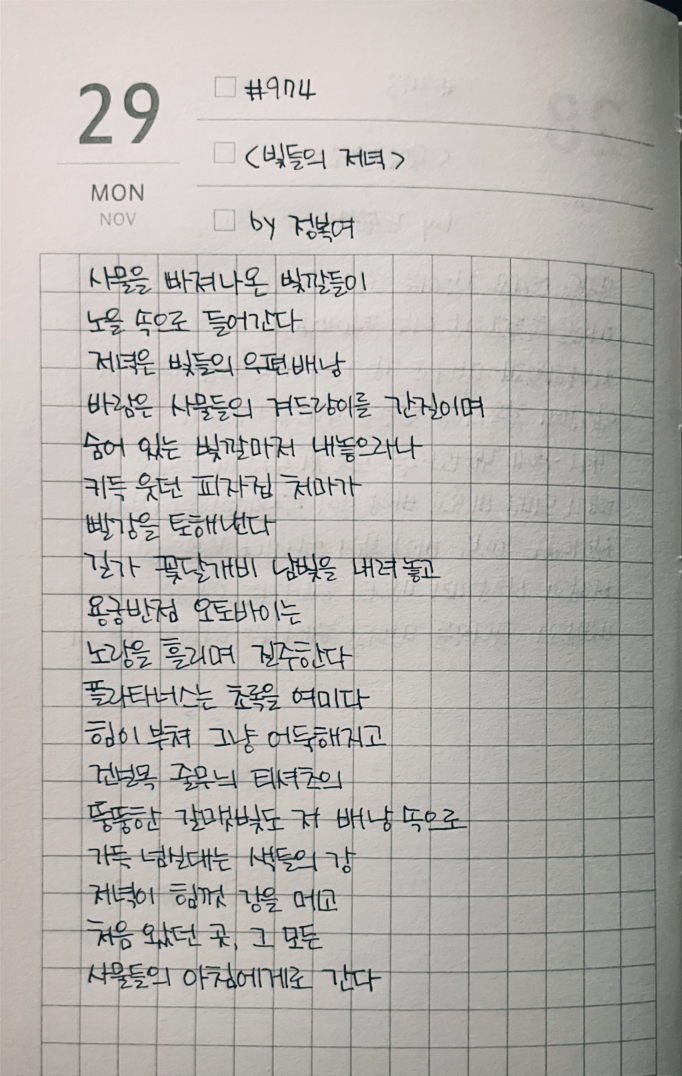 29
MON
NOV
#974
<빛들의 저녁>
by 정복여
사물을 빠져나온 빛깔들이
노을 속으로 들어간다
저녁은 빛들의 우편배낭
바람은 사물들의 겨드랑이를 간질이며
숨어 있는 빛깔마저 내놓으라나
키득 웃던 피자집 처마가
빨강을 토해낸다
길가 꽃달개비 남빛을 내려놓고
용궁반점 오토바이는
노랑을 흘리며 질주한다
플라타너스는 초록을 여미다
힘이 부쳐 그냥 어둑해지고
건널목 줄무늬 티셔츠의
뚱뚱한 갈매빛도 저 배낭 속으로
가득 넘실대는 색들의 강
저녁이 힘껏 강을 메고
처음 왔던 곳, 그 모든
사물들의 아침에게로 간다